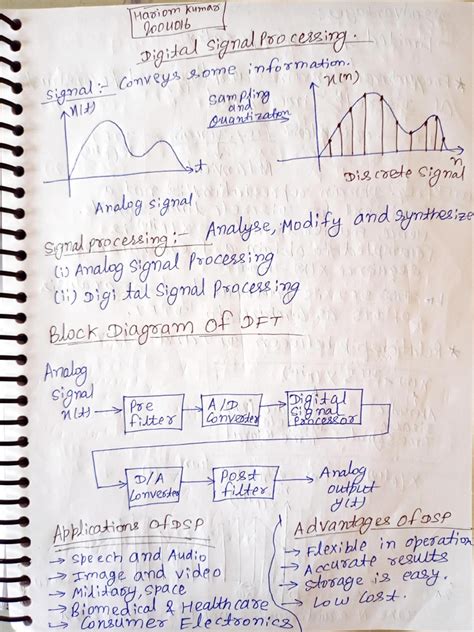 Hariom Kumar
2004016
Digital Signal Processing.
Signal:- Conveys some information.
x(t)
Sampling
and
Quantization
x(n)
t
n
Analog signal
Discrete Signal
Signal processing:- Analyse, Modify and synthesize
(i) Analog Signal Processing
(ii) Digital Signal Processing
Block Diagram Of DFT
Analog
Signal
x(t)
Pre
filter
A/D
Converter
Digital
Signal
Processor
D/A
Converter
Post
filter
Analog
output
y(t)
Applications Of DSP
→ Speech and Audio
→ Image and video
→ Military, space
→ Biomedical & Healthcare
→ Consumer Electronics
Advantages Of DSP
→ Flexible in operation
→ Accurate results
→ Storage is easy.
→ Low Cost.